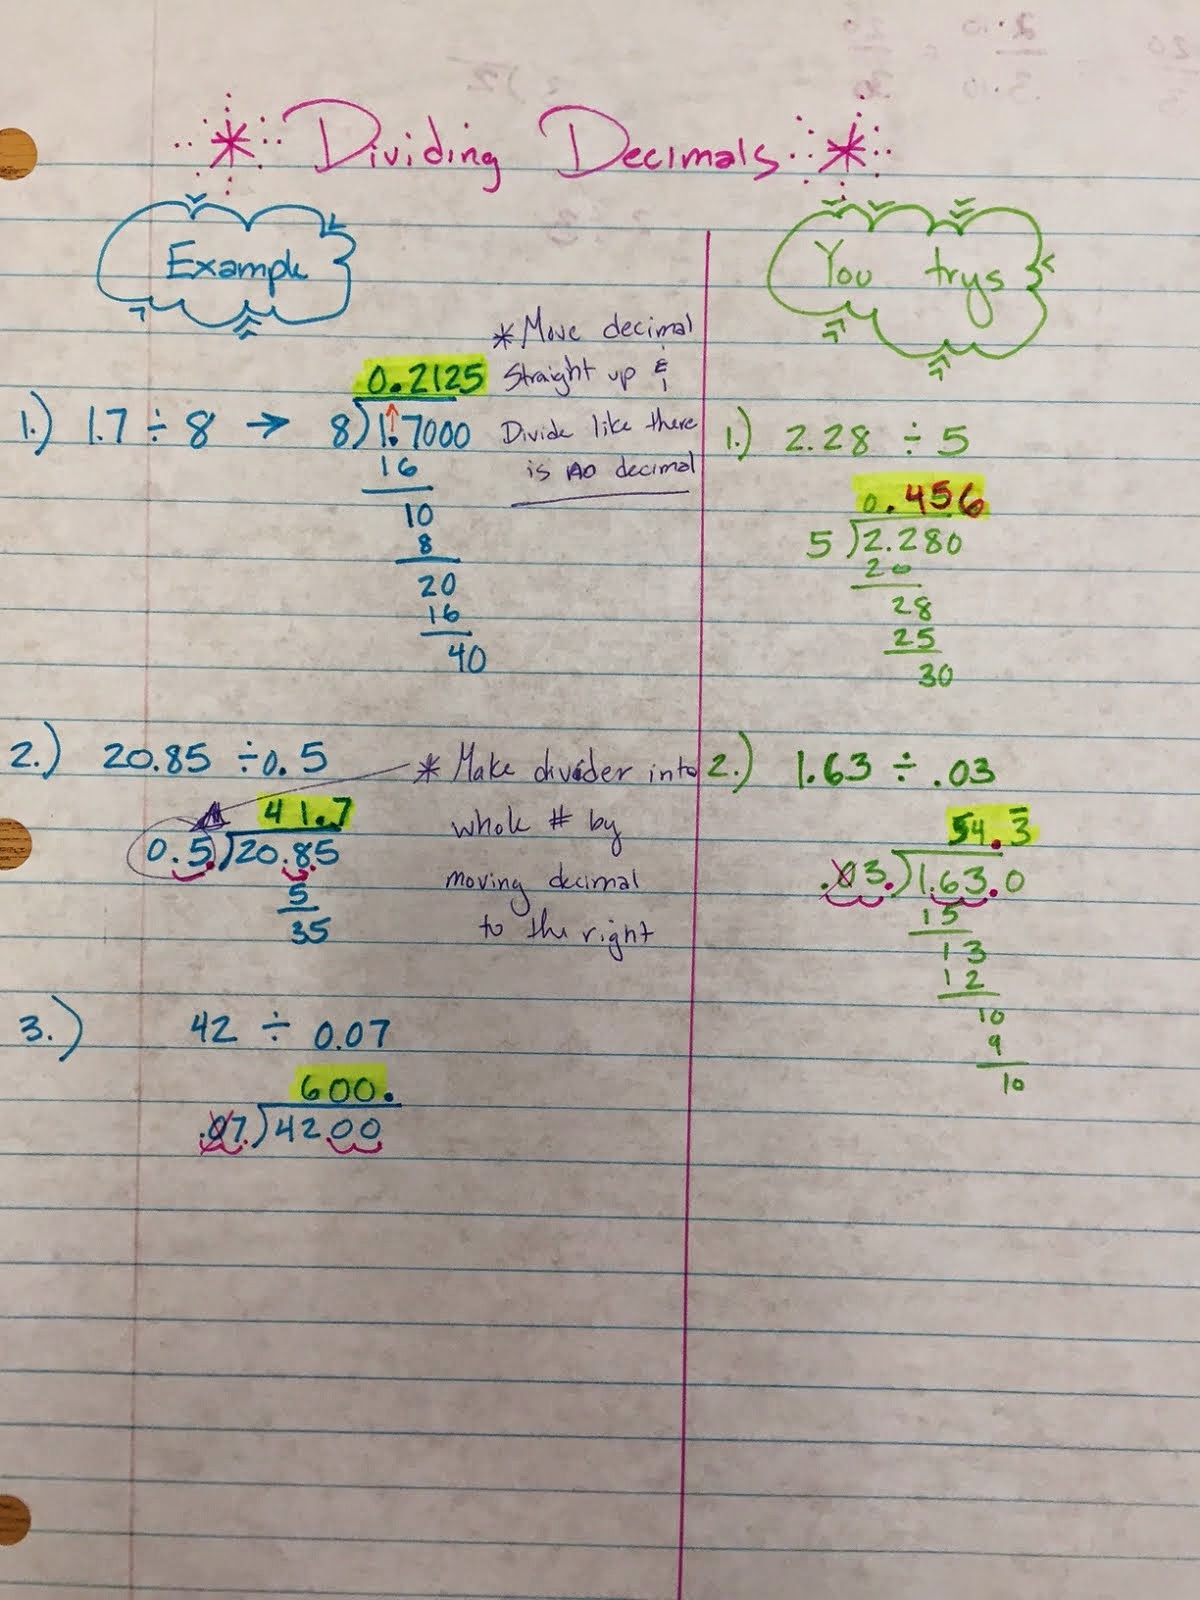 * Dividing Decimals *
Example
1.) 1.7 ÷ 8 → 8)1.7000
0.2125
16
10
8
20
16
40
* Move decimal
straight up &
Divide like there
is no decimal
2.) 20.85 ÷ 0.5
41.7
0.5.)20.85
5
35
* Make divider into
whole # by
moving decimal
to the right
3.) 42 ÷ 0.07
600.
.07.)4200
You trys
1.) 2.28 ÷ 5
0.456
5)2.280
20
28
25
30
2.) 1.63 ÷ .03
54.3̅
.03.)1.63.0
15
13
12
10
9
10